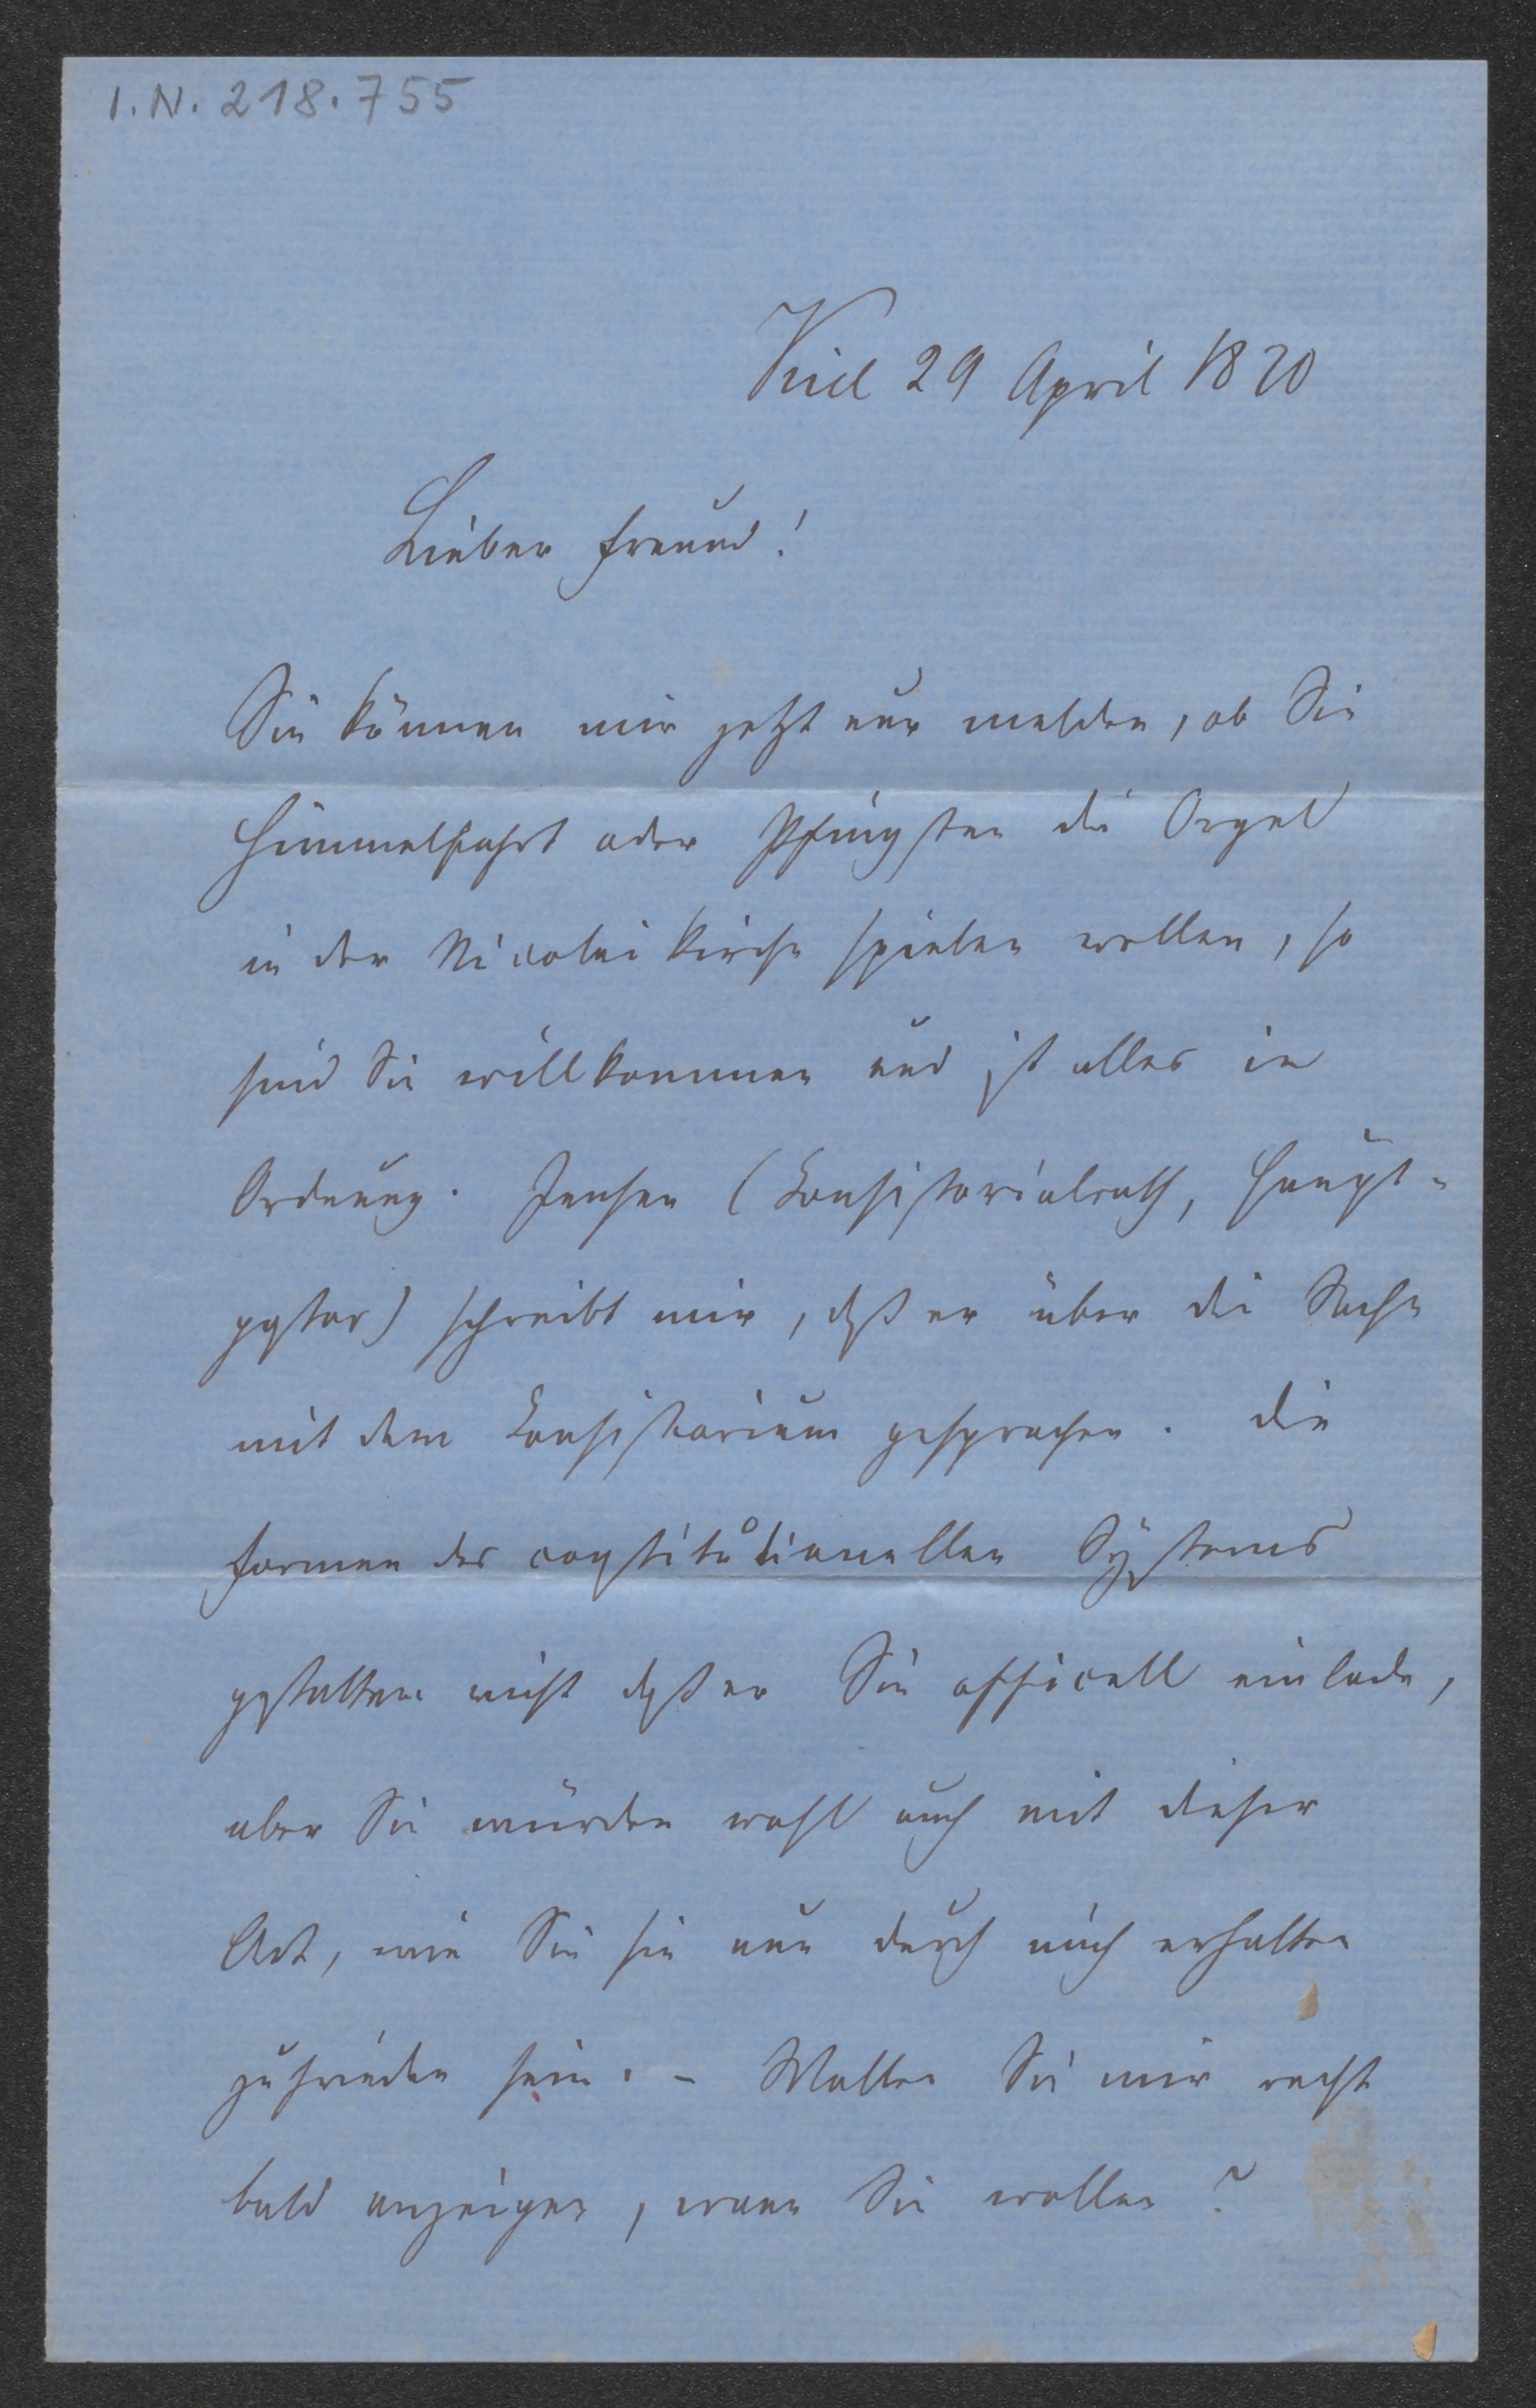 I.N. 218.755
Kiel 29 April 1870
Lieber Freund!
Sie können mir jetzt nur melden, ob Sie
Himmelfahrt oder Pfingsten die Orgel
in der Nicolai Kirche spielen wollen, so
sind Sie willkommen und ist alles in
Ordnung. Jensen (Consistorialrath, Haupt-
pastor) schreibt mir, daß er über die Sache
mit dem Consistorium gesprochen. Die
Formen des constitutionellen Systems
gestatten nicht daß er Sie officell einlade,
aber Sie würden wohl auch mit dieser
Art, wie Sie sie nun durch mich erhalten
zufrieden sein. – Wollen Sie mir recht
bald anzeigen, wann Sie wollen?